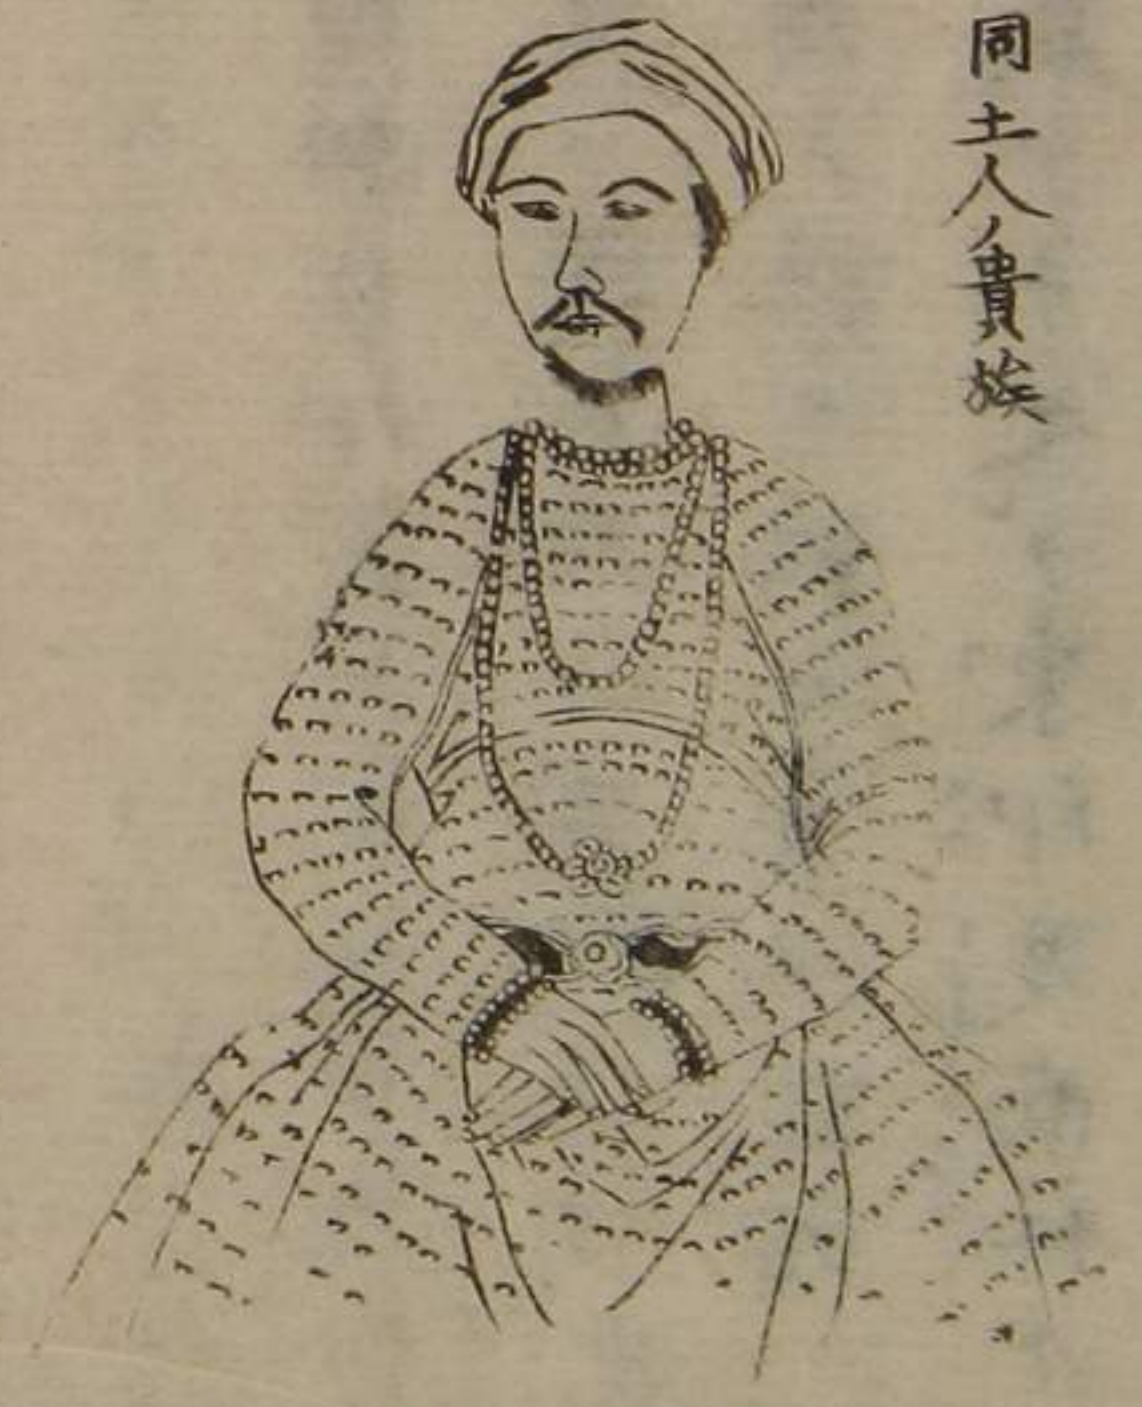 同土人ノ貴族